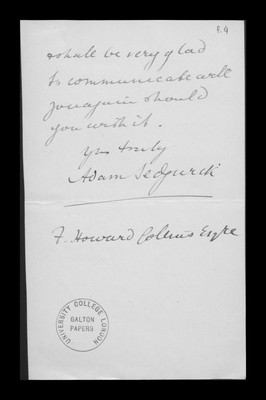 & shall be very glad
to communicate with
you again should
you wish it.
Yrs truly
Adam Sedgwick
F. Howard Collins Esqre
UNIVERSITY COLLEGE LONDON
GALTON
PAPERS